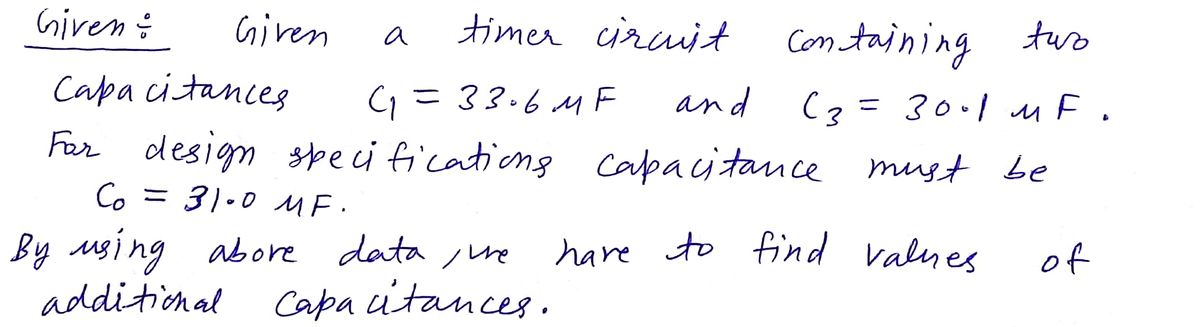 Given ÷ Given a timer circuit containing two
Capacitances C1 = 33.6 μF and C3 = 30.1 μF.
For design specifications capacitance must be
C0 = 31.0 μF.
By using above data, we have to find values of
additional capacitances.